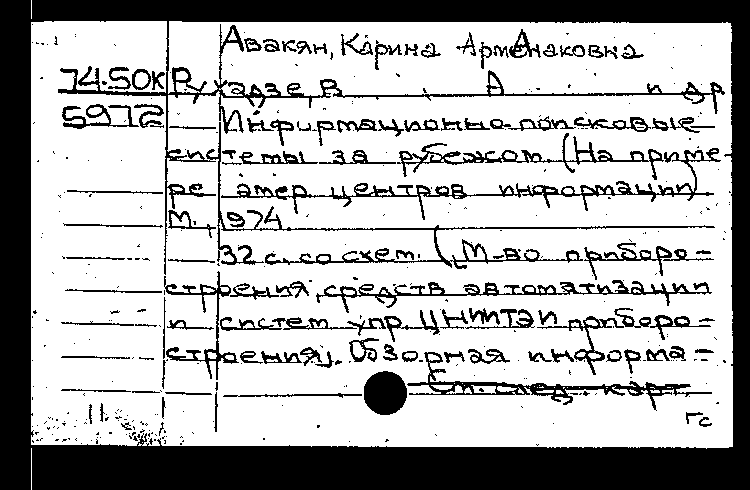 Авакян, Карина Арменаковна
74.50к Рухадзе, В. А и др
5972 Информационно-поисковые
системы за рубежом. (На приме-
ре амер. центров информации)
М., 1974.
32 с. со схем. (М-во приборо-
строения, средств автоматизации
и систем упр. ЦНИИТЭИ приборо-
строения). Обзорная информа-
См. след. карт.
11 гс